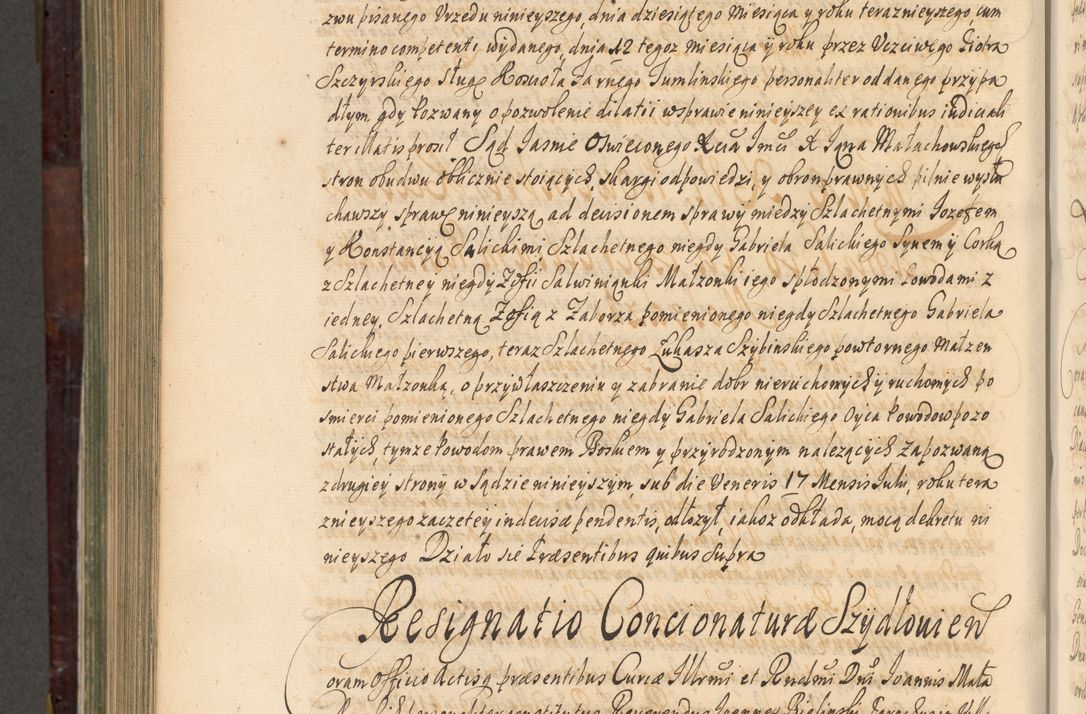 zwu pisanego Vrzędu ninieyszego, dnia dziesiątego Miesiąca y roku teraznieyszego cum
termino competenti wydanego, dnia 12 tegoz miesiąca ÿ roku przez Vczciwego Piotra
Szczyrskiego sługę Kościoła Farnego Jumlinskiego personaliter oddanego przypa
dłym, gdy Pozwany o pozwolenie dilatii w sprawie ninieyszey ex rationibus iudiciali
ter illatis prosił Sąd Jasnie Oświeconego Xcia Jmci X Jana Małachowskiego
stron obudwu oblicznie stoiących, skargi odpowiedzi, y obron prawnych pilnie wysłu
chawszy, sprawę ninieyszą, ad decisionem sprawy między Szlachetnymi Jozefem
y Konstancyą Salickimi, Szlachetnego niegdy Gabriela Salickiego Synem ÿ Corką
z Szlachetney niegdy Zofii Salwinianki Małzonki iego spłodzonymi Powodami z
iedney, Szlachetną Zofią z Zaborza pomienionego niegdy Szlachetnego Gabriela
Salickiego pierwszego, teraz Szlachetnego Łukasza Szybinskiego powtornego Małzen
stwa Małzonką, o przywłaszczeniu y zabranie dobr nieruchomych ÿ ruchomych po
smierci pomienionego Szlachetnego niegdy Gabriela Salickiego Oyca Powodow pozo
stałych, tymze Powodom prawem Boskiem y przyrodzonym nalezących Zapozwaną
z drugiey strony w Sądzie ninieyszym, sub die Veneris 17 Mensis Julii, roku tera
znieyszego zaczętey indecisæ pendentis, odłozył, iakoz odkłada, mocą dekretu ni
nieyszego Działo sie Præsentibus quibus supra
Resignatio Concionaturæ Szydłovien
oram Officio Actisq præsentibus Curiæ Illrmi et Rndmi Dni Joannis Mała